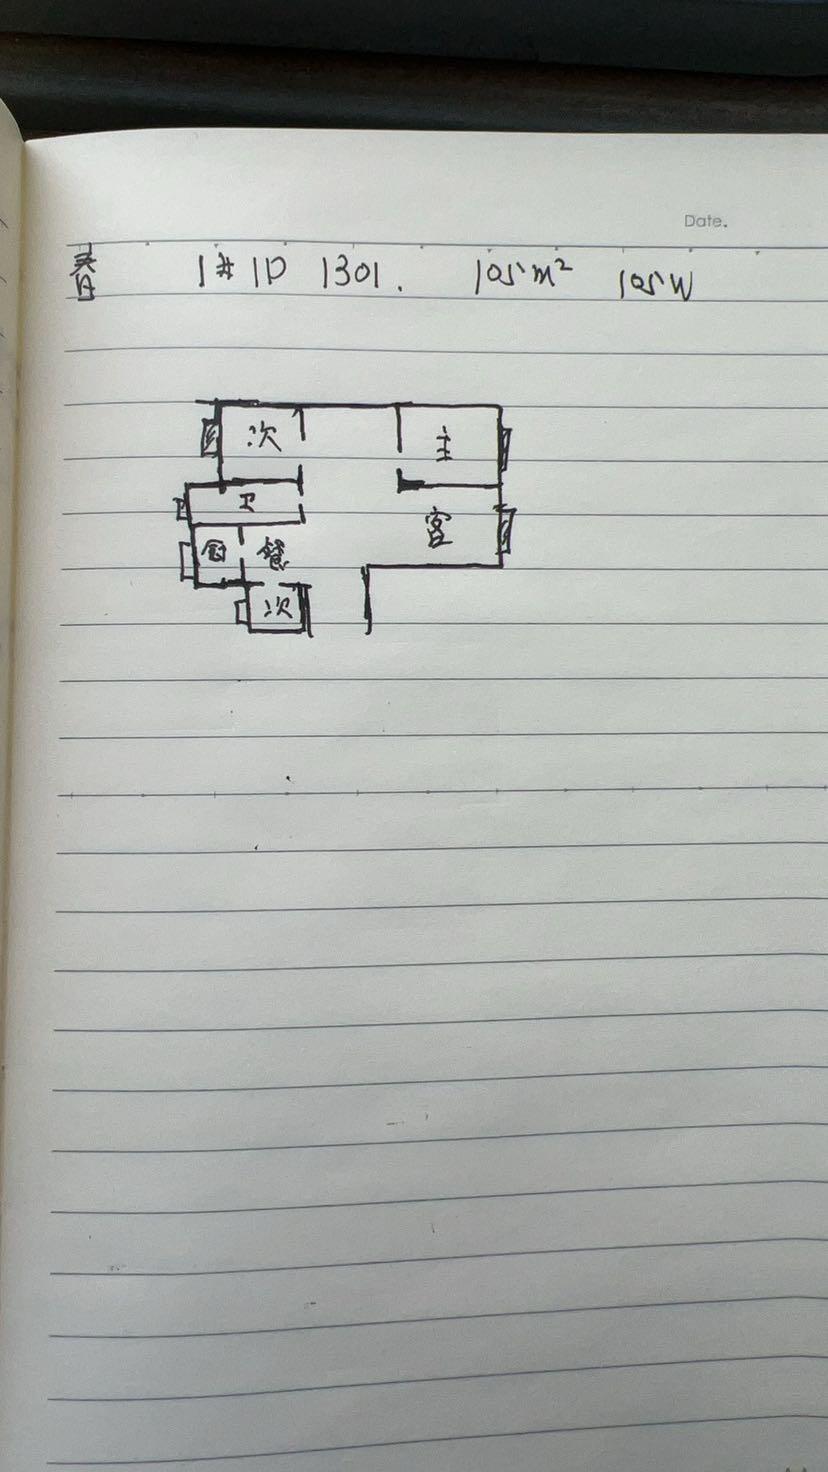 Date.
春 1# 1D 1301. 105m² 105W
次 主
卫
客
厨 餐
次